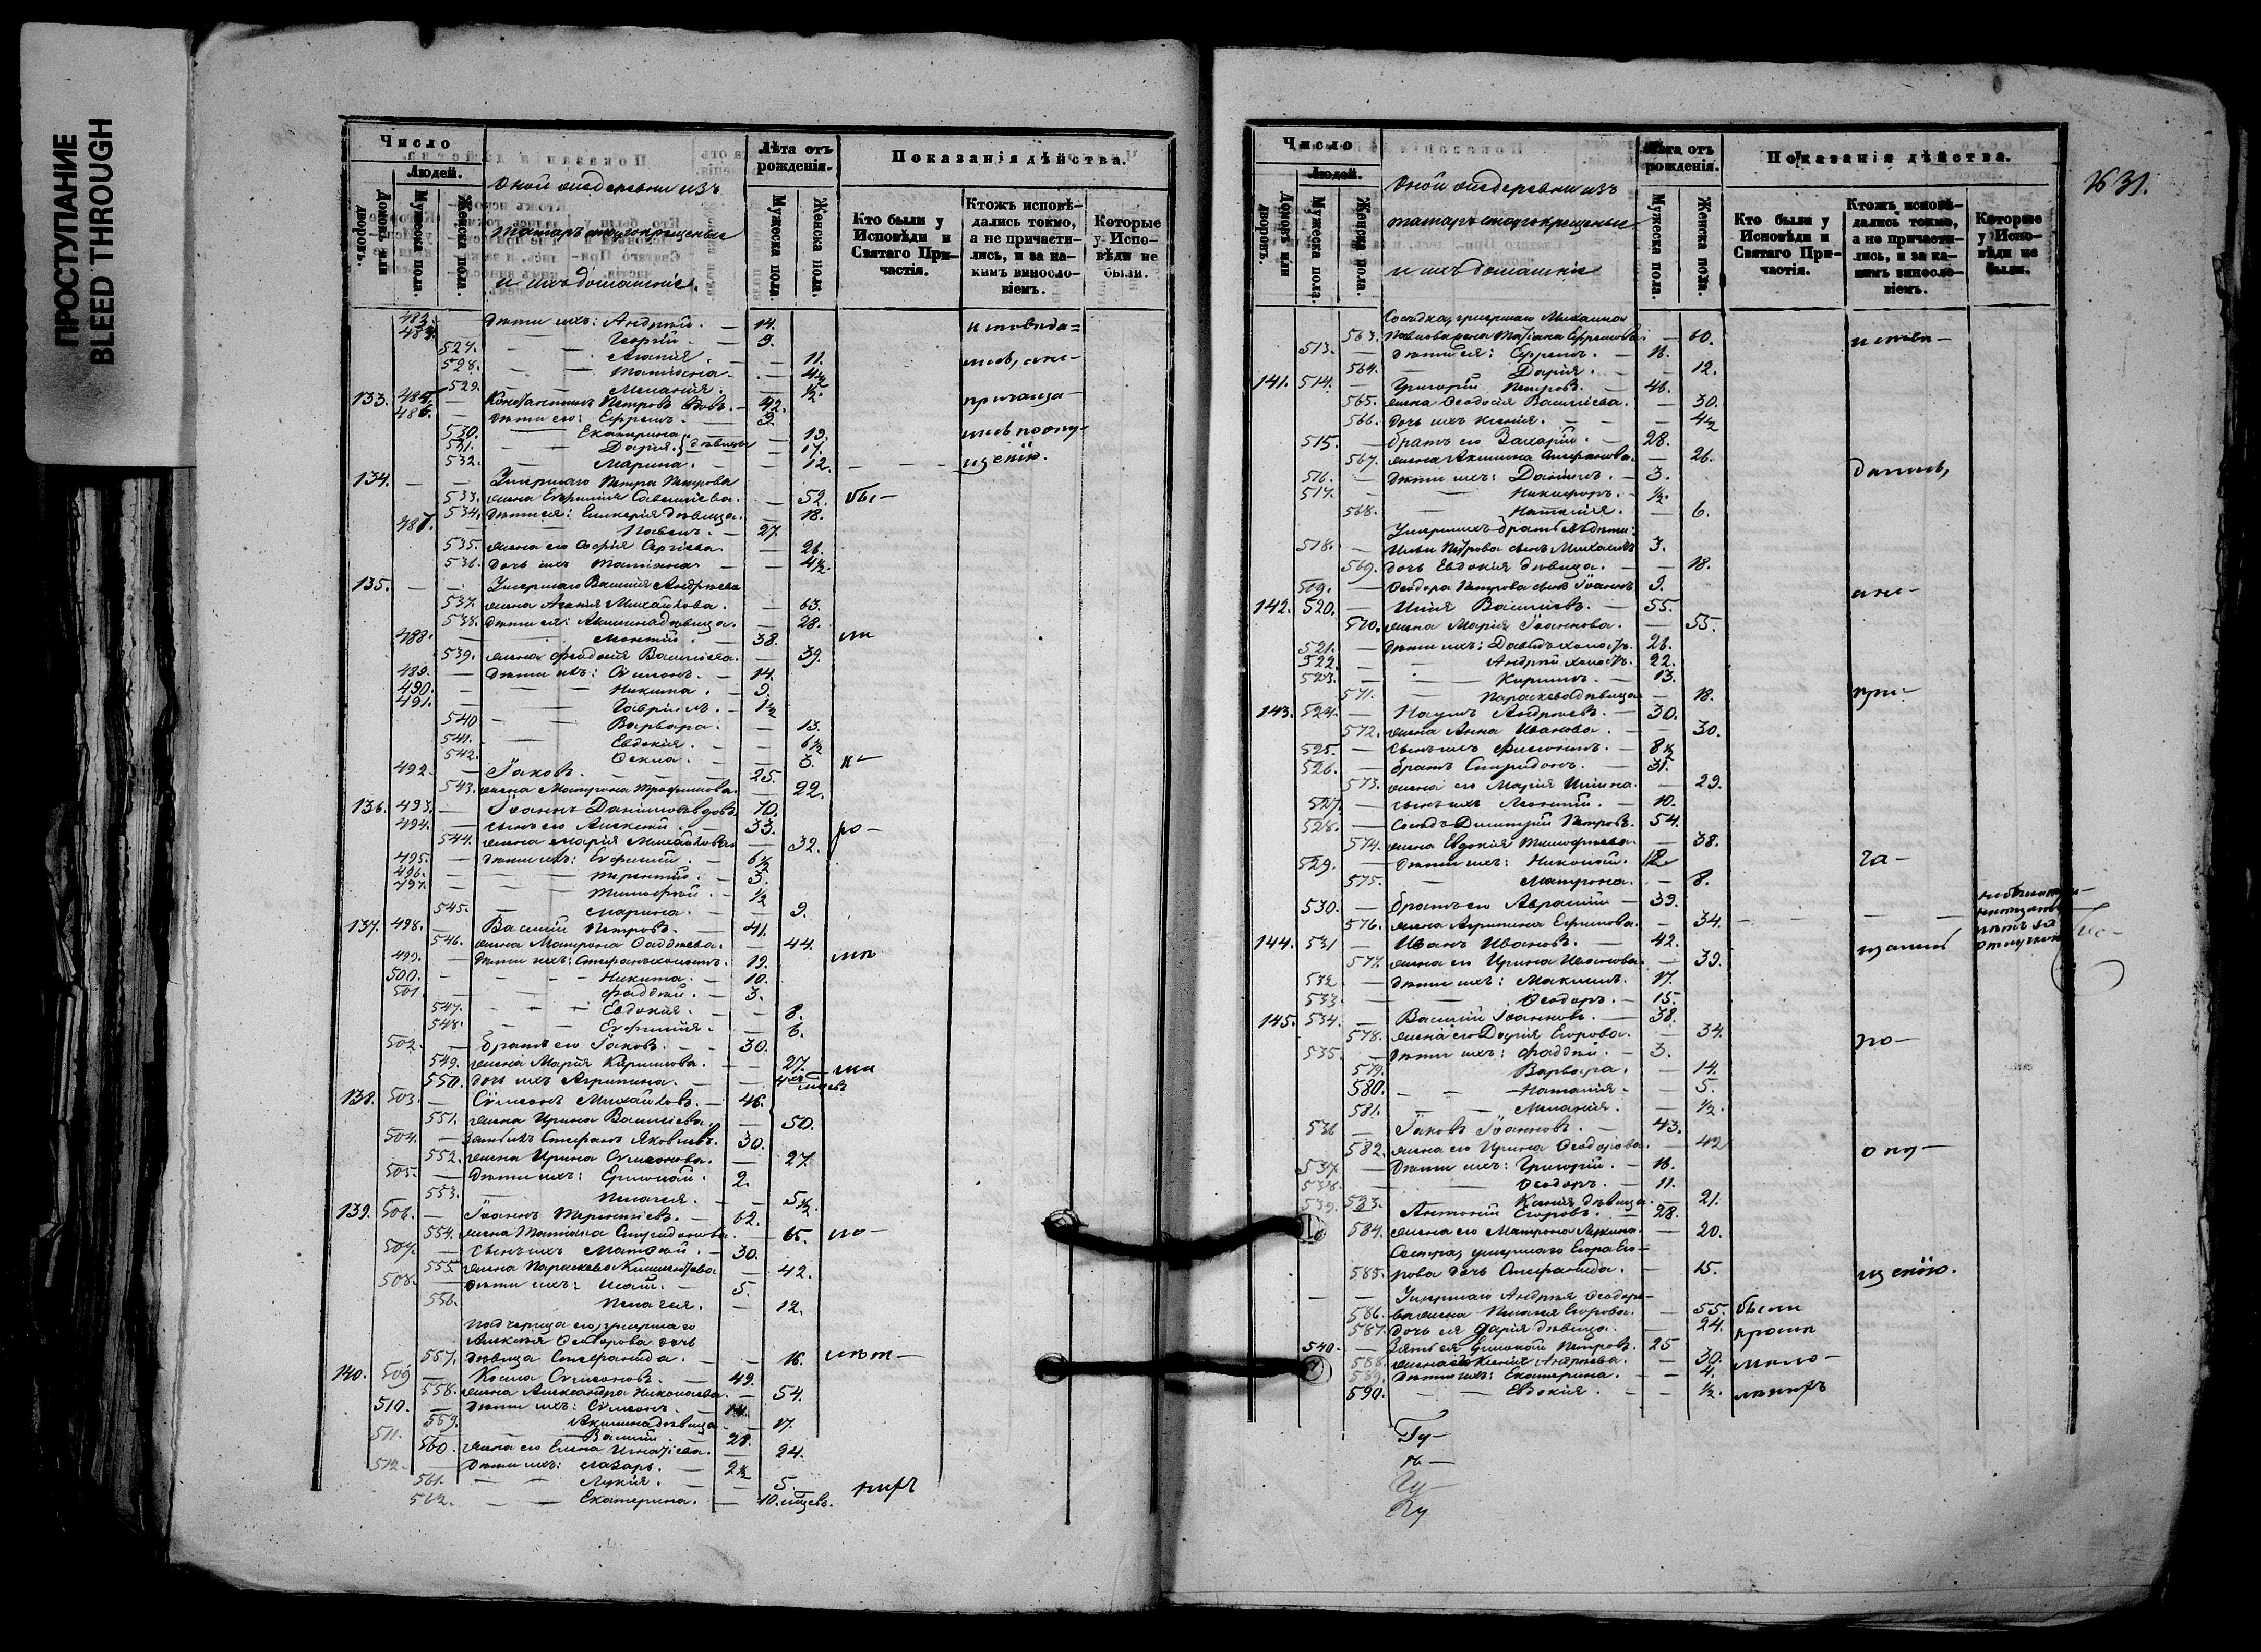 ПРОСТУПАНИЕ
BLEED THROUGH
Число
Людей.
Домовъ или дворовъ.
Мужеска пола.
Женска пола.
Оной же деревни изъ
татаръ старокрещеные
и ихъ домашніе.
Лѣта отъ рожденія.
Мужеска пола.
Женска пола.
Показанія дѣйства.
Кто были у Исповѣди и Святаго Причастія.
Ктожъ исповѣдались токмо, а не причастились, и за какимъ винословіемъ.
Которые у Исповѣди не были.
482. — дѣти ихъ: Андрей. — 14.
483. — Георгій. — 9.
527. — Агапія. — 11.
528. — Татіана. — 4½
529. — Меланія. — ½
133. 485. — Константинъ Петровъ вдовъ. — 42.
486. — дѣти его: Ефремъ. — 9.
530. — Екатерина. — 19.
531. — Дарія. } дѣвицы — 17.
532. — Марина. — 12.
134. — — Умершаго Петра Петрова
533. жена Евфимія Савельева. — 52. бы-
534. дѣти ея: Гликерія дѣвица. — 18.
487. — Павелъ. — 27.
535. жена его Софія Сергіева. — 26.
536. дочь ихъ Татіана. — 4½
135. — — Умершаго Василія Андреева
537. жена Агапія Михайлова. — 63.
538. дѣти ея: Акилина дѣвица. — 28.
488. — Леонтій. — 38. ли
539. жена Феодосія Васильева. — 39.
489. — дѣти ихъ: Симеонъ. — 14.
490. — Никита. — 9.
491. — Гавріилъ. — 1½
540 — Варвара. — 13.
541. — Евдокія. — 6½
542. — Фекла. — 3.
492. — Іаковъ. — 25.
543. жена Матрона Трофимова. — 22.
136. 493. — Іоаннъ Даниловъ вдовъ. 70.
494. — сынъ его Алексій. — 33. ро-
544. жена Марія Михайлова — 32.
495. — дѣти ихъ: Евфимій. — 6½
496. — Терентій. — 3.
497. — Тимофей. — ½
545. — Марина. — 9.
137. 498. — Василій Петровъ. — 41.
546. жена Матрона Фаддеева. — 44.
499. — дѣти ихъ: Стефанъ холостъ. — 19.
500. — Никита. — 10.
501. — Фаддей. — 3.
547. — Евдокія. — 8.
548. — Евфимія. — 6.
502. — братъ его Іаковъ. — 30.
549. жена Марія Кирилова. — 27.
550. дочь ихъ Агрипина.
138. 503. — Симеонъ Михайловъ. — 46.
551. жена Ирина Васильева. — 50.
504. — зять ихъ Стефанъ Яковлевъ. 30.
552. жена Ирина Симеонова. — 27.
505. — дѣти ихъ: Ермолай. — 2.
553. — Пелагея. — 5½
139. 506. — Іоаннъ Терентіевъ. — 62.
554. жена Татіана Спиридонова. — 65.
507. — сынъ ихъ Матѳей. — 30.
555. жена Параскева Климентьева — 42.
508. — дѣти ихъ: Исай. — 5.
556. Пелагея. — 12.
Падчерица его, умершаго
Алексія Ѳеодорова дочь
557. дѣвица Стефанида. — 16.
140. 509 — Косма Симеоновъ. — 49.
558. жена Александра Николаева. — 54.
510. — дѣти ихъ: Симеонъ. — 14.
559. Акилина дѣвица — 17.
511. — Василій — 28.
560. жена его Елена Игнатіева. — 24.
512. — дѣти ихъ: Лазарь. — 2½
561. — Лукія. — 5.
562. — Екатерина. — 10. мѣсяцевъ.
исповѣда=
лись, а не
причаща-
лись по опу-
щенію.
1631.
Число
Людей.
Домовъ или дворовъ.
Мужеска пола.
Женска пола.
Оной же деревни изъ
татаръ старокрещеные
и ихъ домашніе
Лѣта отъ рожденія.
Мужеска пола.
Женска пола.
Показанія дѣйства.
Кто были у Исповѣди и Святаго Причастія.
Ктожъ исповѣдались токмо, а не причастились, и за какимъ винословіемъ.
Которые у Исповѣди не были.
Сосѣдка, умершаго Михаила
563. Татіана Ефремова. — 60. исповѣ-
513. — дѣти ея: Ефремъ. — 16.
564. — Дарія. — 12.
141. 514. — Григорій Петровъ. — 46.
565. жена Ѳеодосія Васильева. — 30.
566. дочь ихъ Ксенія. — 4½
515. — братъ его Захарій. — 28.
567. жена Акилина Стефанова. — 26.
516. — дѣти ихъ: Даніилъ. — 3.
517. — Никифоръ. — ½
568. — Наталія. — 6.
Умершихъ братьевъ дѣти:
518. — Ильи Петрова сынъ Михаилъ 3.
569. дочь Евдокія дѣвица. — 18.
519. — Ѳеодора Петрова сынъ Іоаннъ 9.
142. 520. — Илія Васильевъ. — 55.
570. жена Марія Іоаннова. — 55.
521. — дѣти ихъ: Давидъ холостъ. 26.
522. — Андрей холостъ. 22.
523. — Кирилъ. — 13.
571. — Параскева дѣвица — 18. при-
143. 524. — Наумъ Андреевъ. — 30.
572. жена Анна Иванова. — 30.
525. — сынъ ихъ Филимонъ. — 8½
526. — братъ Спиридонъ. — 31.
573. жена его Марія Ильина. — 29.
527. — сынъ ихъ Леонтій. — 10.
528. — Сосѣдъ Димитрій Петровъ. 54.
574. жена Евдокія Тимофеева. — 38.
529. — дѣти ихъ: Николай. 12 ча-
575. — Матрона. — 8.
530. — братъ его Аврамій — 39.
576. жена Агрипина Ефимова. — 34.
144. 531 — Иванъ Ивановъ. — 42.
577. жена его Ирина Иванова. — 39.
532 — дѣти ихъ: Максимъ. 17.
533 — Ѳеодоръ. — 15.
145. 534. — Василій Іоанновъ. — 38.
578. жена его Дарія Егорова. — 34.
535. — дѣти ихъ: Фаддей. — 3. по-
579. Варвара. — 14.
580. — Наталія. — 5.
581. — Меланія. — ½.
536 — Іаковъ Іоанновъ. — 43.
582. жена его Ирина Ѳеодорова. 42 опу-
537. — дѣти ихъ: Григорій. — 16.
538. — Ѳеодоръ. — 11.
583. Ксенія дѣвица. — 21.
539. Антоній Егоровъ. — 28.
584. жена его Матрона Лукина. — 20.
Сестра, умершаго Егора Его-
585. рова дочь Стефанида. — 15. щенію.
— — Умершаго Андрея Ѳеодоро-
586. ва жена Пелагея Егорова. — 55. были
587. дочь ея Дарія дѣвица. — 24. кромѣ
540. — Зять ея Ермолай Петровъ. 25
588. жена его Ксенія Андреева. — 30. мало-
589. дѣти ихъ: Екатерина. — 4.
590. — Евдокія. — ½.